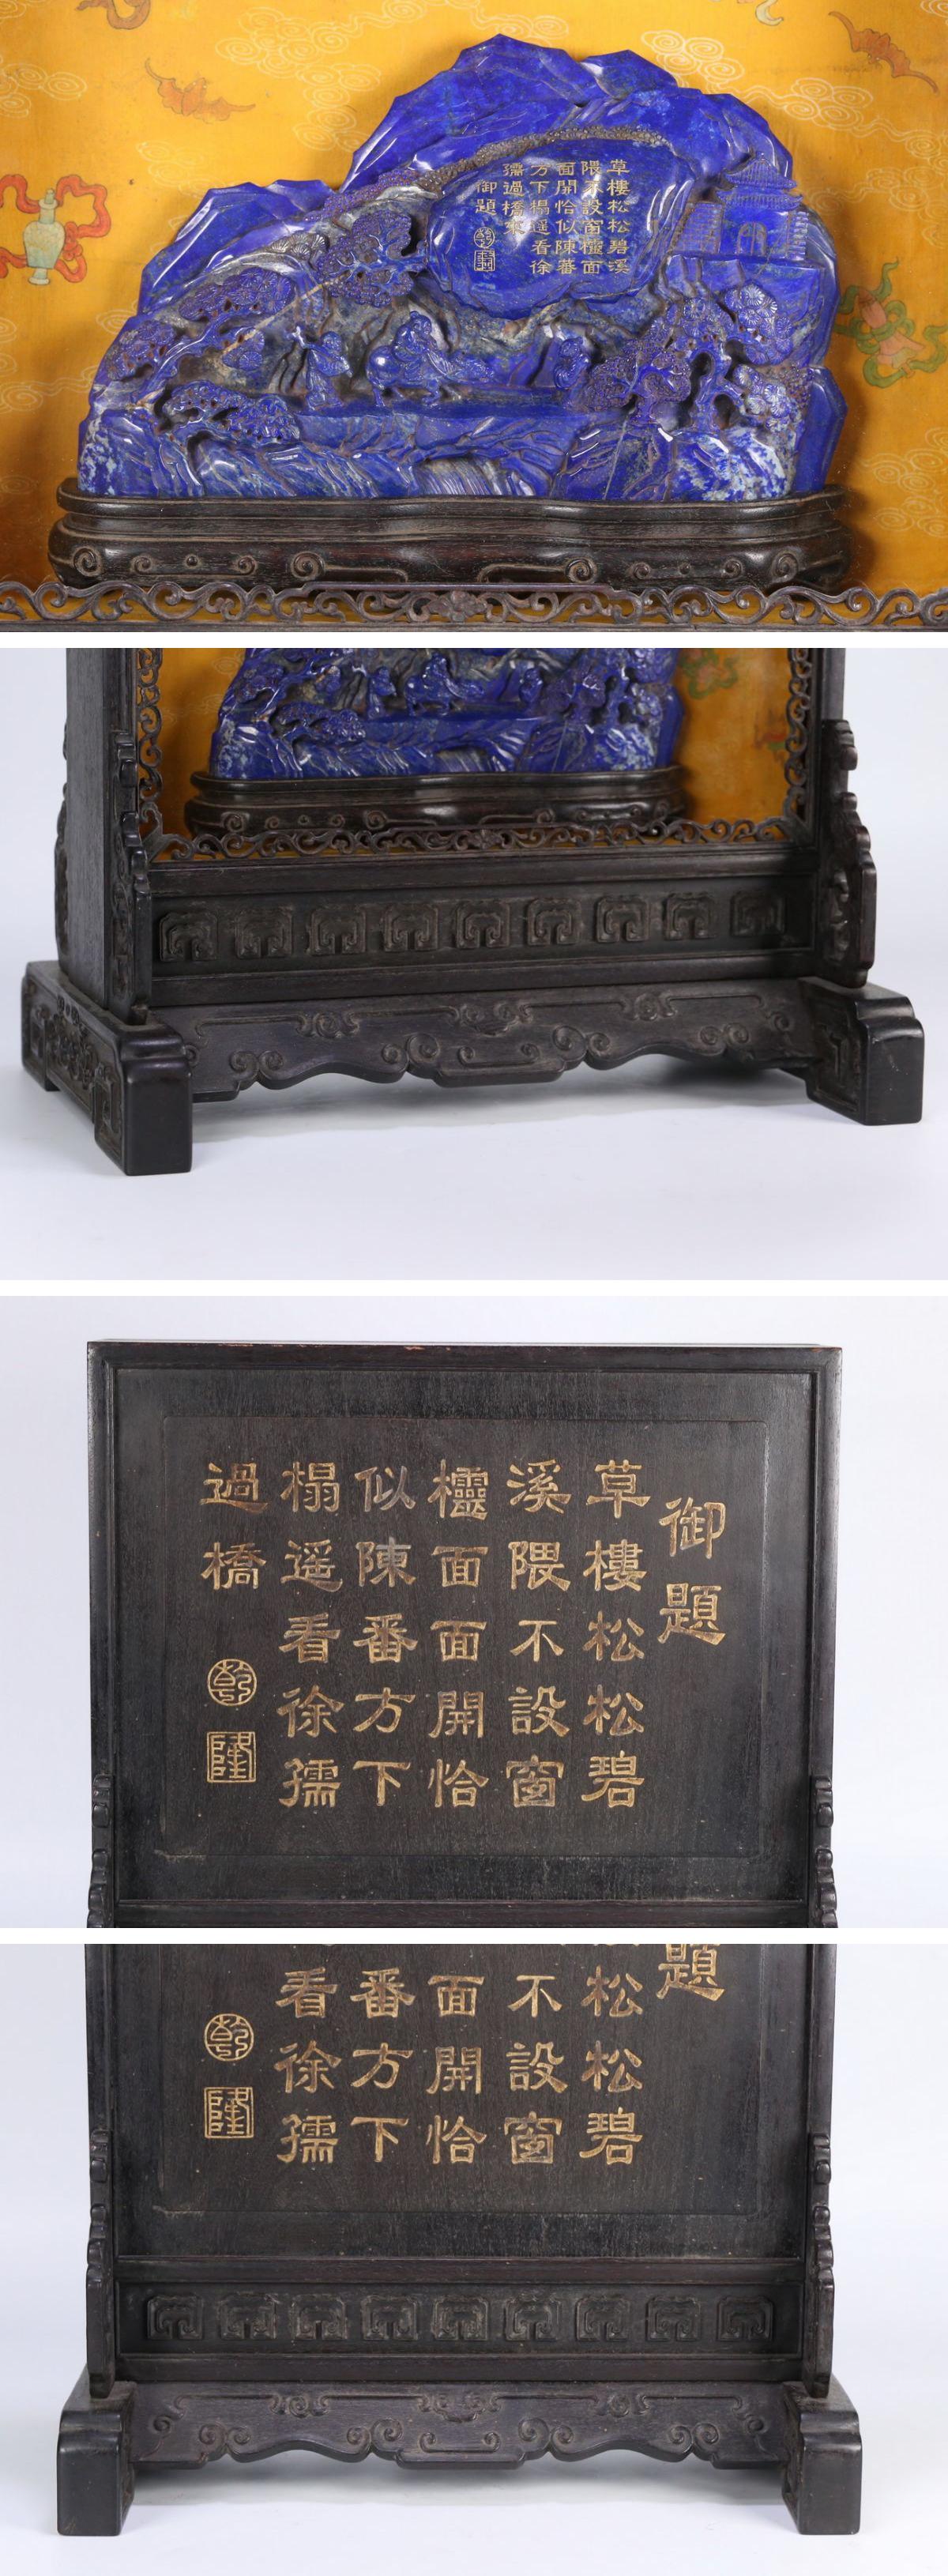 草樓松松碧溪
隈不設窗櫺面
面開恰似陳蕃
方下榻遥看徐
孺過橋來
御題
乾
隆
御題
草樓松松碧
溪隈不設窗
欞面面開恰
似陳番方下
榻遥看徐孺
過橋
乾
隆
題
松松碧
不設窗
面開恰
番方下
看徐孺
乾
隆